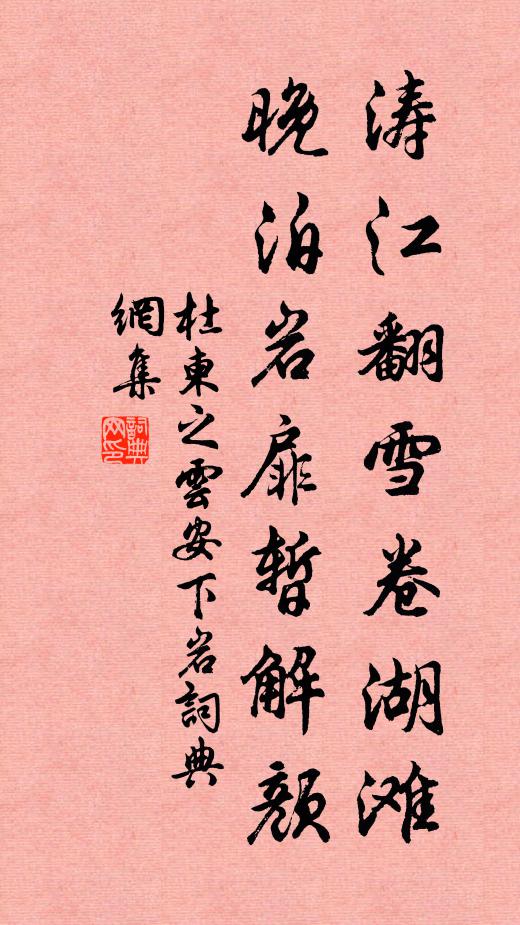 涛江翻雪卷湖滩
晚泊岩扉暂解颜
杜東之雲安下岩詞典
網集
詞典
网印